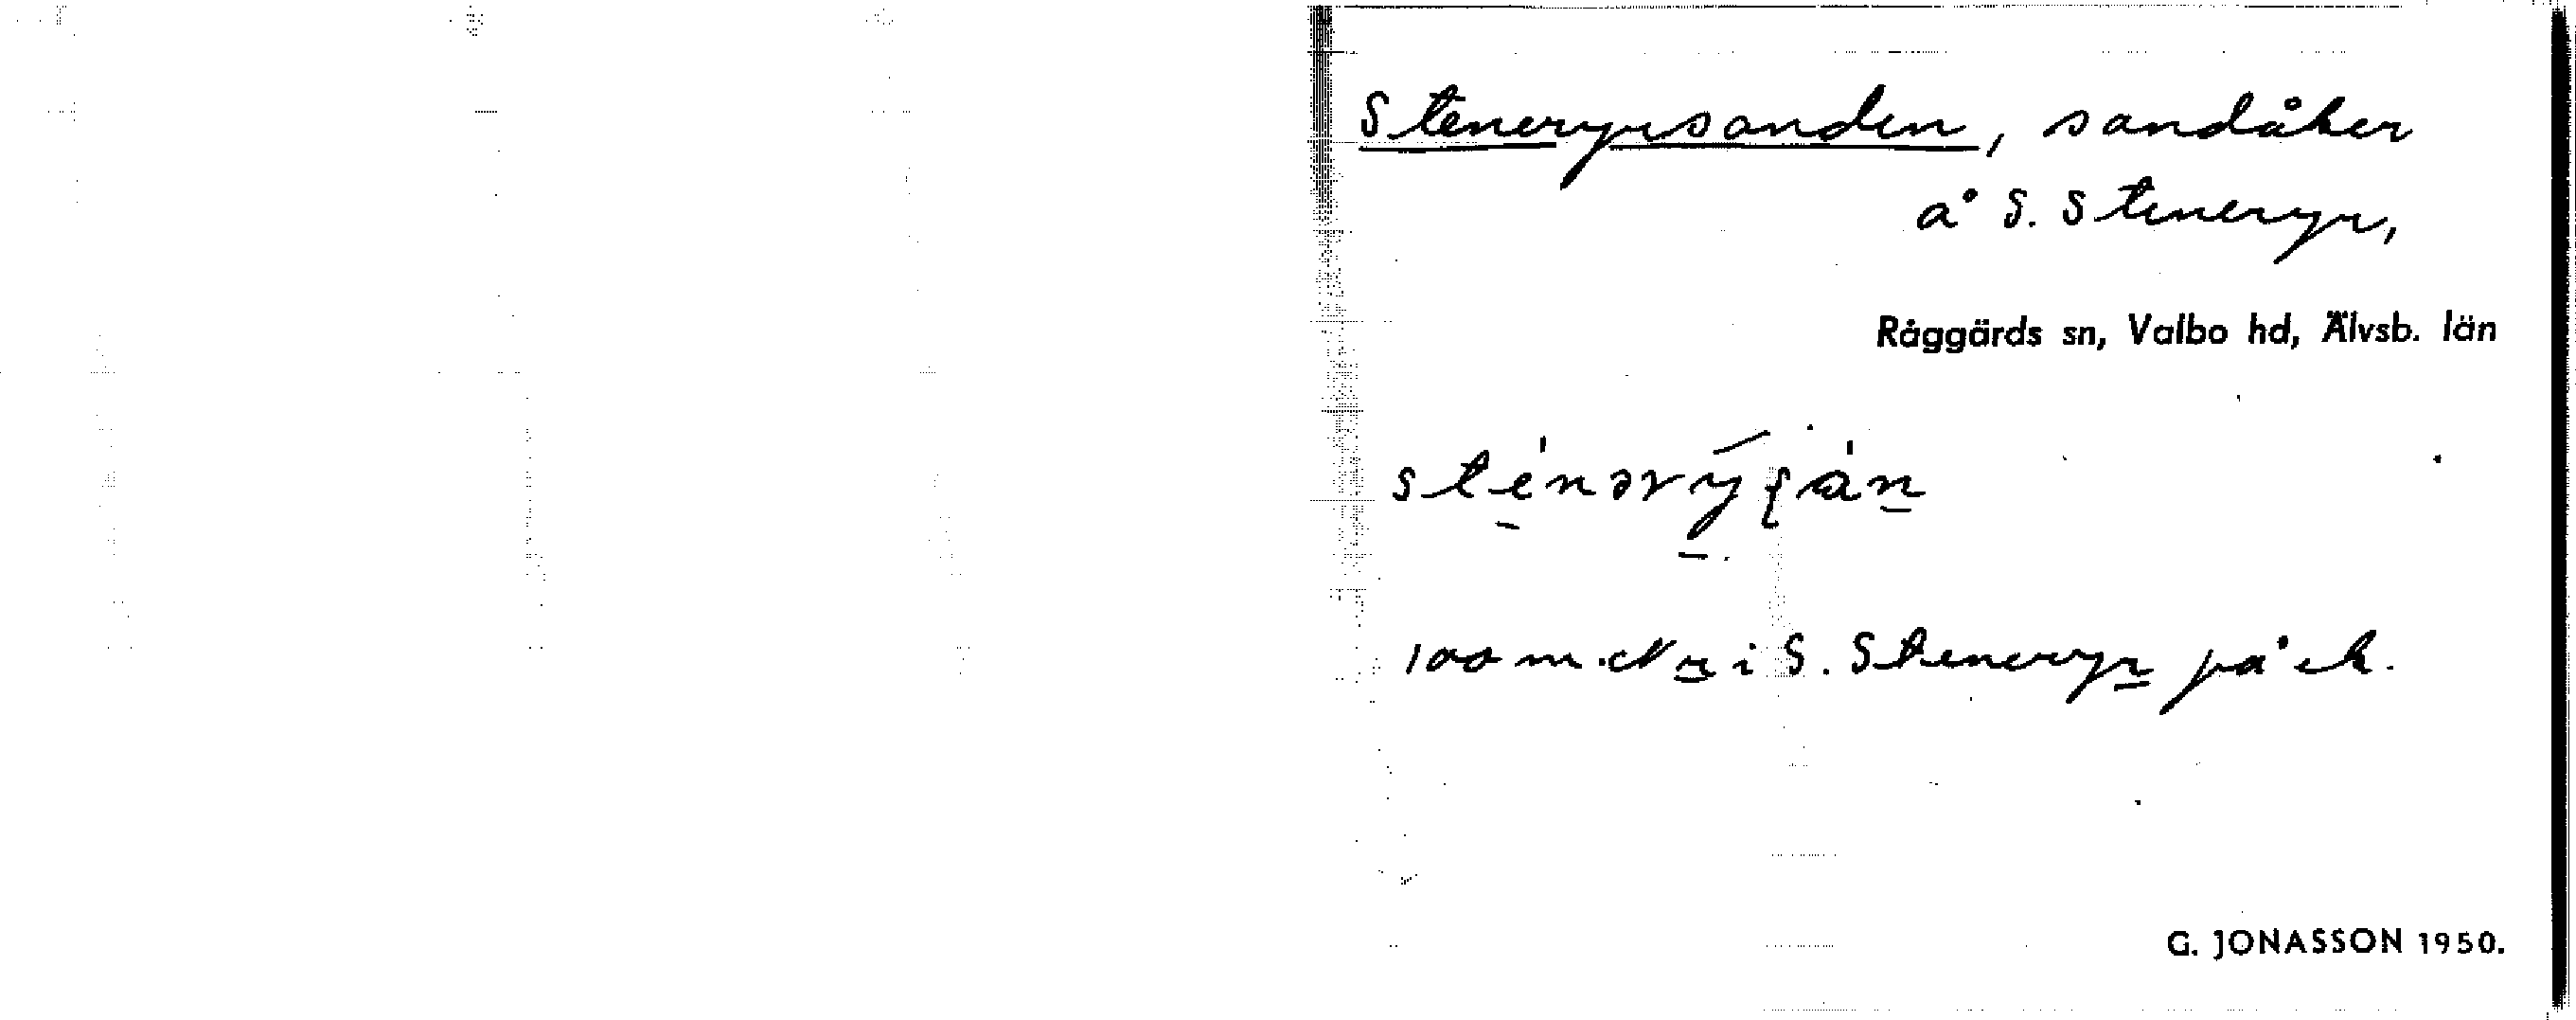 Steneryrsanden, sandåker
å S. Steneryr,
Råggärds sn, Valbo hd, Älvsb. län
100 m N r i S. Steneryr på ek.
G. JONASSON 1950.